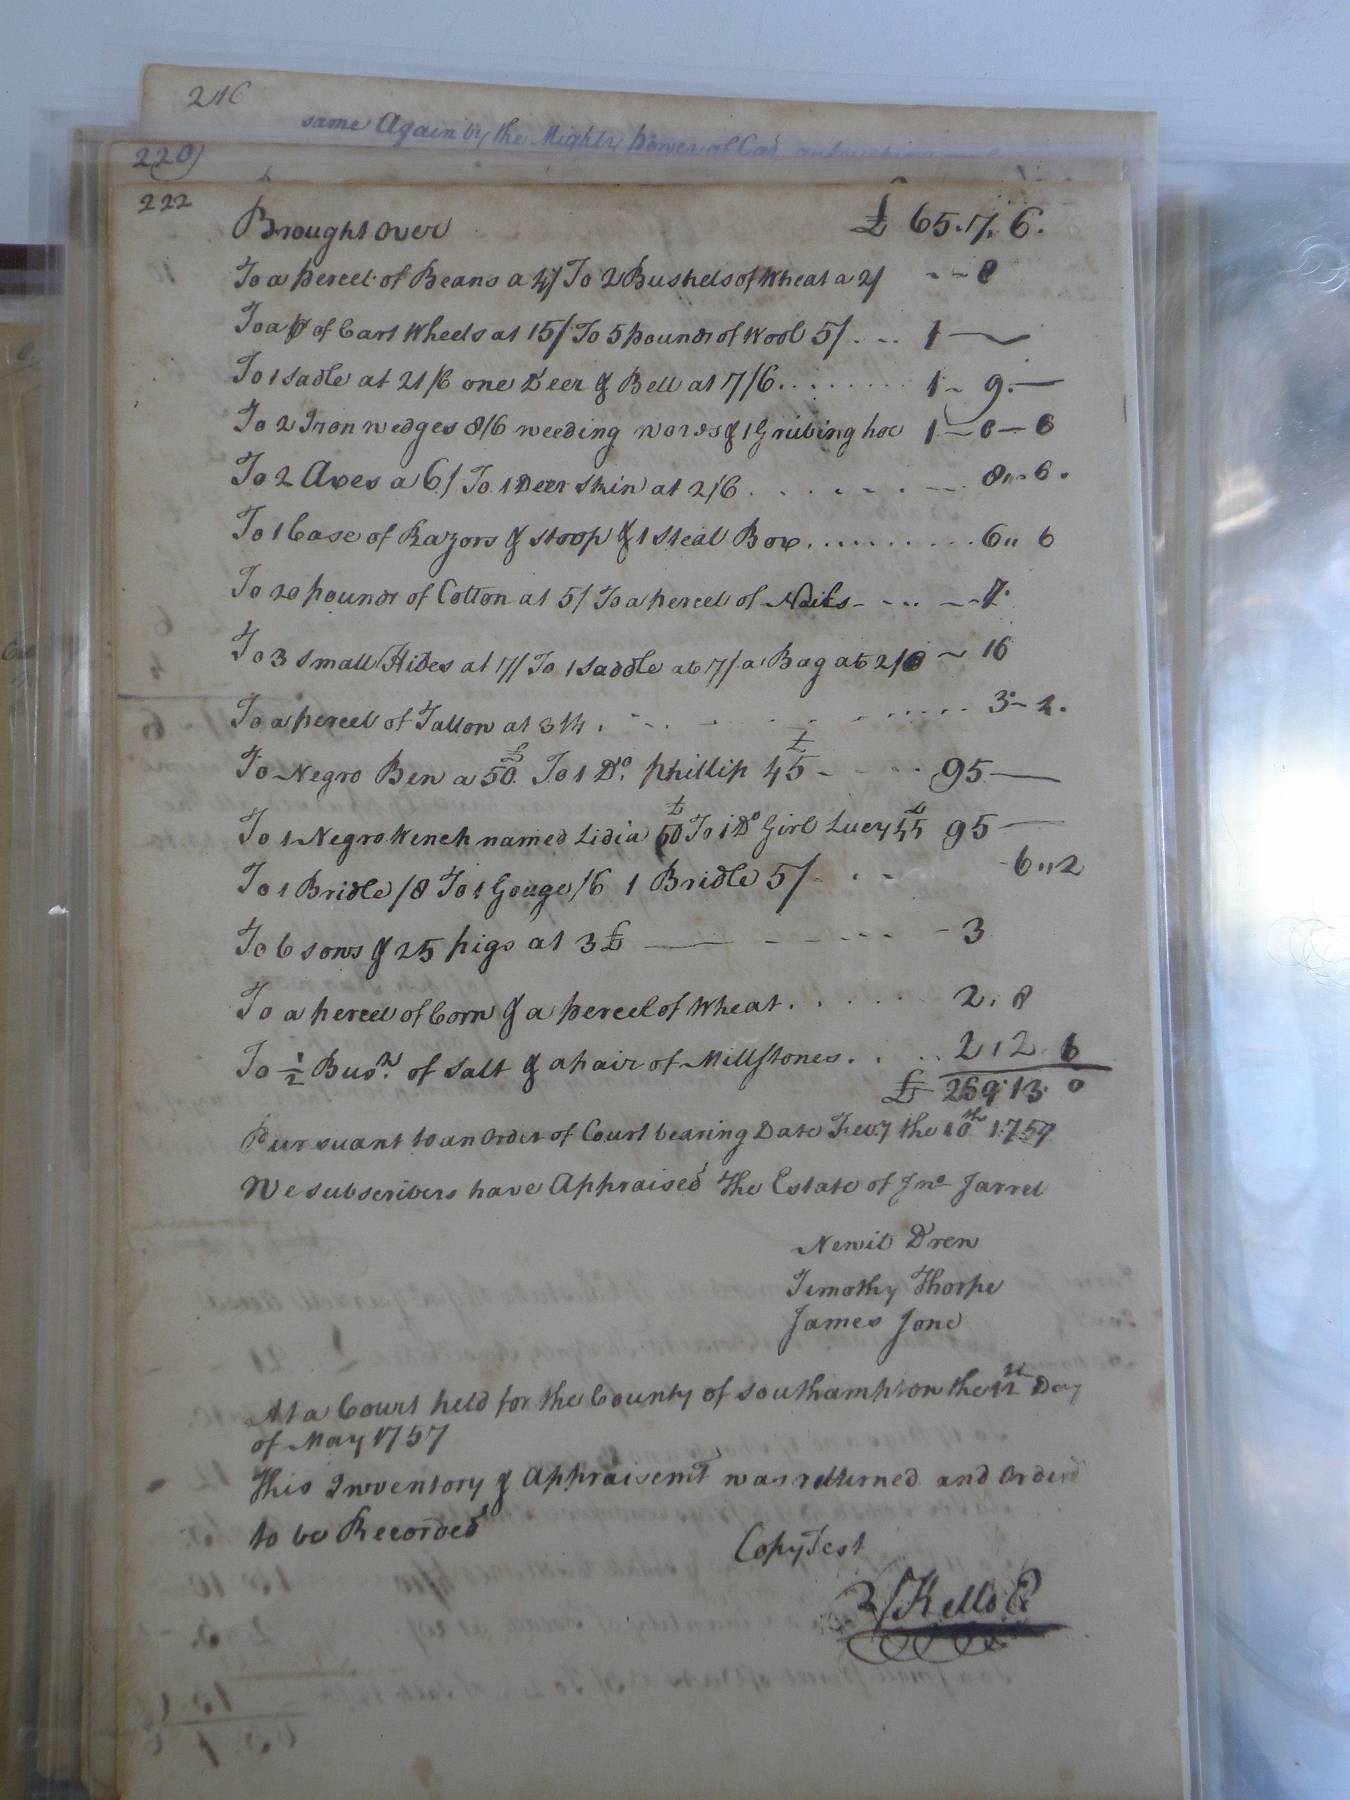 216
same Again by the Mighty power of God
220)
222
Brought over £ 65.17.6.
To a percel of Beans a 4/ To 2 Bushels of Wheat a 2/ - - 8
To a pr of Cart Wheels at 15/ To 5 pounds of Wool 5/ . . . 1 —
To 1 Sadle at 21/6 one Deer & Bell at 7/6 . . . . . . . . 1 - 9. —
To 2 Iron wedges 8/6 weeding & 1 Grubing hoe 1 — 0 — 6
To 2 Axes a 6/ To 1 Deer Skin at 2/6 . . . . - - . — 8 " 6 .
To 1 Case of Razors & stoop & 1 Steal Box . . . . . . . . . . 6 " 6
To 20 pounds of Cotton at 5/ To a percel of Nails - - . . — 7
To 3 small Hides at 7/ To 1 Saddle at 7/ a Bag at 2/ ~ 16
To a percel of Tallow at 3/4 . 3 - 2 .
To Negro Ben a 50£ To 1 Do. phillip 45£ - - . . . 95 —
To 1 Negro Wench named Lidia 50£ To 1 Do Girl Lucy 45£ 95 —
To 1 Bridle /8 To 1 Gouge /6 1 Bridle 5/ - . - - 6 " 2
To 6 sows & 25 pigs at 3£ — - - - - - - 3
To a percel of Corn & a percel of Wheat . . . . . 2 . 8
To ½ Bush. of Salt & a pair of Millstones . . . . 2 , 2 . 6
£ 269 . 13 . 0
Pursuant to an Order of Court bearing Date Fevy the 10th 1757
We subscribers have Appraised The Estate of Jno Jarrel
Newit Drew
Timothy Thorpe
James Jone
At a Court held for the County of Southampton the 12th Day
of May 1757
This Inventory & Appraisemt was returned and Orderd
to be Recorded
Copy Test
R/ Kello C